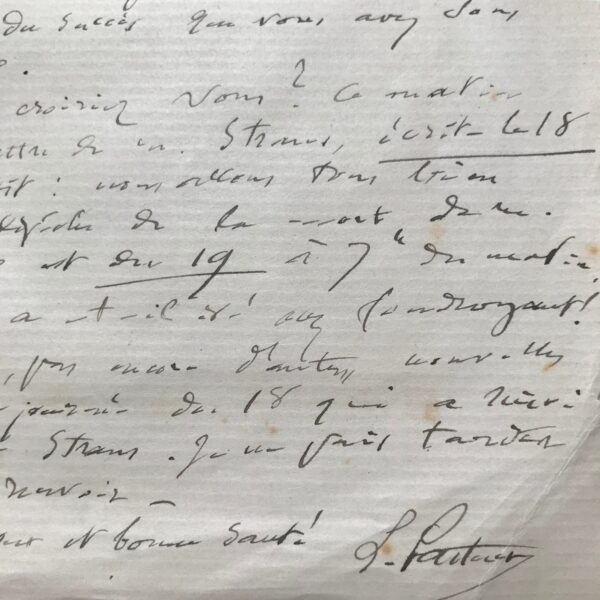 du succès que vous avez dans
croiriez vous? Ce matin
lettre de M. Straus, écrite le 18
: nous allons tous bien
dépêche de la mort de M.
est du 19 à 7h du matin,
a-t-il été assez foudroyant!
, pas encore d'autres nouvelles
journée du 18 qui a suivi
Straus. Je ne puis tarder
recevoir
et bonne santé
L. Pasteur